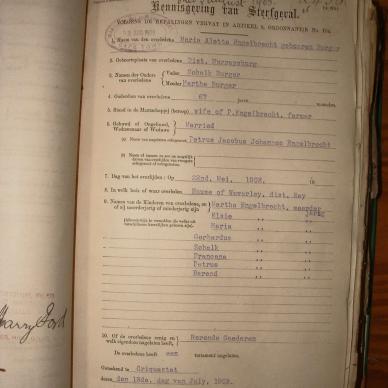 Kennisgeving van Sterfgeval.
VOLGENS DE BEPALINGEN VERVAT IN ARTIKEL 9, ORDONNANTIE No. 104
1. Naam van den overledene Maria Aletta Engelbrecht geboren Burger
2. Geboorteplaats van overledene Dist. Murraysburg
3. Namen der Ouders van overledene
Vader Schalk Burger
Moeder Martha Burger
4. Ouderdom van overledene 67 jaren, maanden.
5. Stand in de Maatschappij (beroep) wife of P. Engelbrecht, farmer
6. Gehuwd of Ongehuwd, Weduwnaar of Weduwe Married
Petrus Jacobus Johannes Engelbrecht
7. Dag van het overlijden: Op 22nd. Mei. 1902. in
8. In welk huis of waar overleden House of Waverley, dist. Hay
9. Namen van de Kinderen van overledene, en of zij meerderjarig of minderjarig zijn
Martha Engelbrecht, meerderjarig
Elsie " "
Maria " "
Gerhardus " "
Schalk " "
Francina " "
Petrus " "
Barend " "
10. Of de overledene eenig en welk eigendom nagelaten heeft, Roerende Goederen
De overledene heeft een testament nagelaten.
Geteekend te Griquastad
den 13de. dag van July, 1903.
Harry Ford